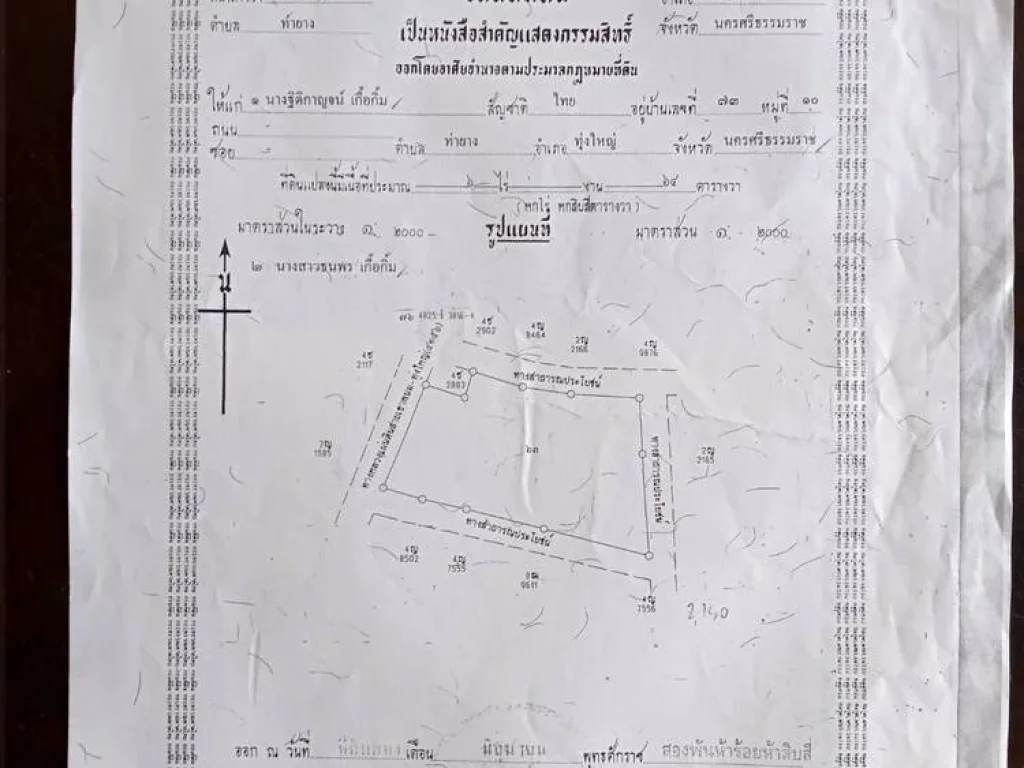 ตำบล ท่ายาง จังหวัด นครศรีธรรมราช
เป็นหนังสือสำคัญแสดงกรรมสิทธิ์
ออกโดยอาศัยอำนาจตามประมวลกฎหมายที่ดิน
ให้แก่ ๑ นางฐิติกาญจน์ เกื้อกิ้ม สัญชาติ ไทย อยู่บ้านเลขที่ ๗๓ หมู่ที่ ๑๐
ถนน
ซอย - ตำบล ท่ายาง อำเภอ ทุ่งใหญ่ จังหวัด นครศรีธรรมราช
ที่ดินแปลงนี้มีเนื้อที่ประมาณ ๖ ไร่ - งาน ๖๔ ตารางวา
(หกไร่ หกสิบสี่ตารางวา)
มาตราส่วนในระวาง ๑: ๒๐๐๐ รูปแผนที่ มาตราส่วน ๑: ๒๐๐๐
๒ นางสาวธนพร เกื้อกิ้ม
น
4925 3816-4
2902
8464
2166
9876
2117
2883
ทางสาธารณประโยชน์
1595
๖๓
ทางสาธารณประโยชน์
2165
ทางสาธารณประโยชน์
8502
7555
9611
7556
2,140
ออก ณ วันที่ เดือน มิถุนายน พุทธศักราช สองพันห้าร้อยห้าสิบสี่